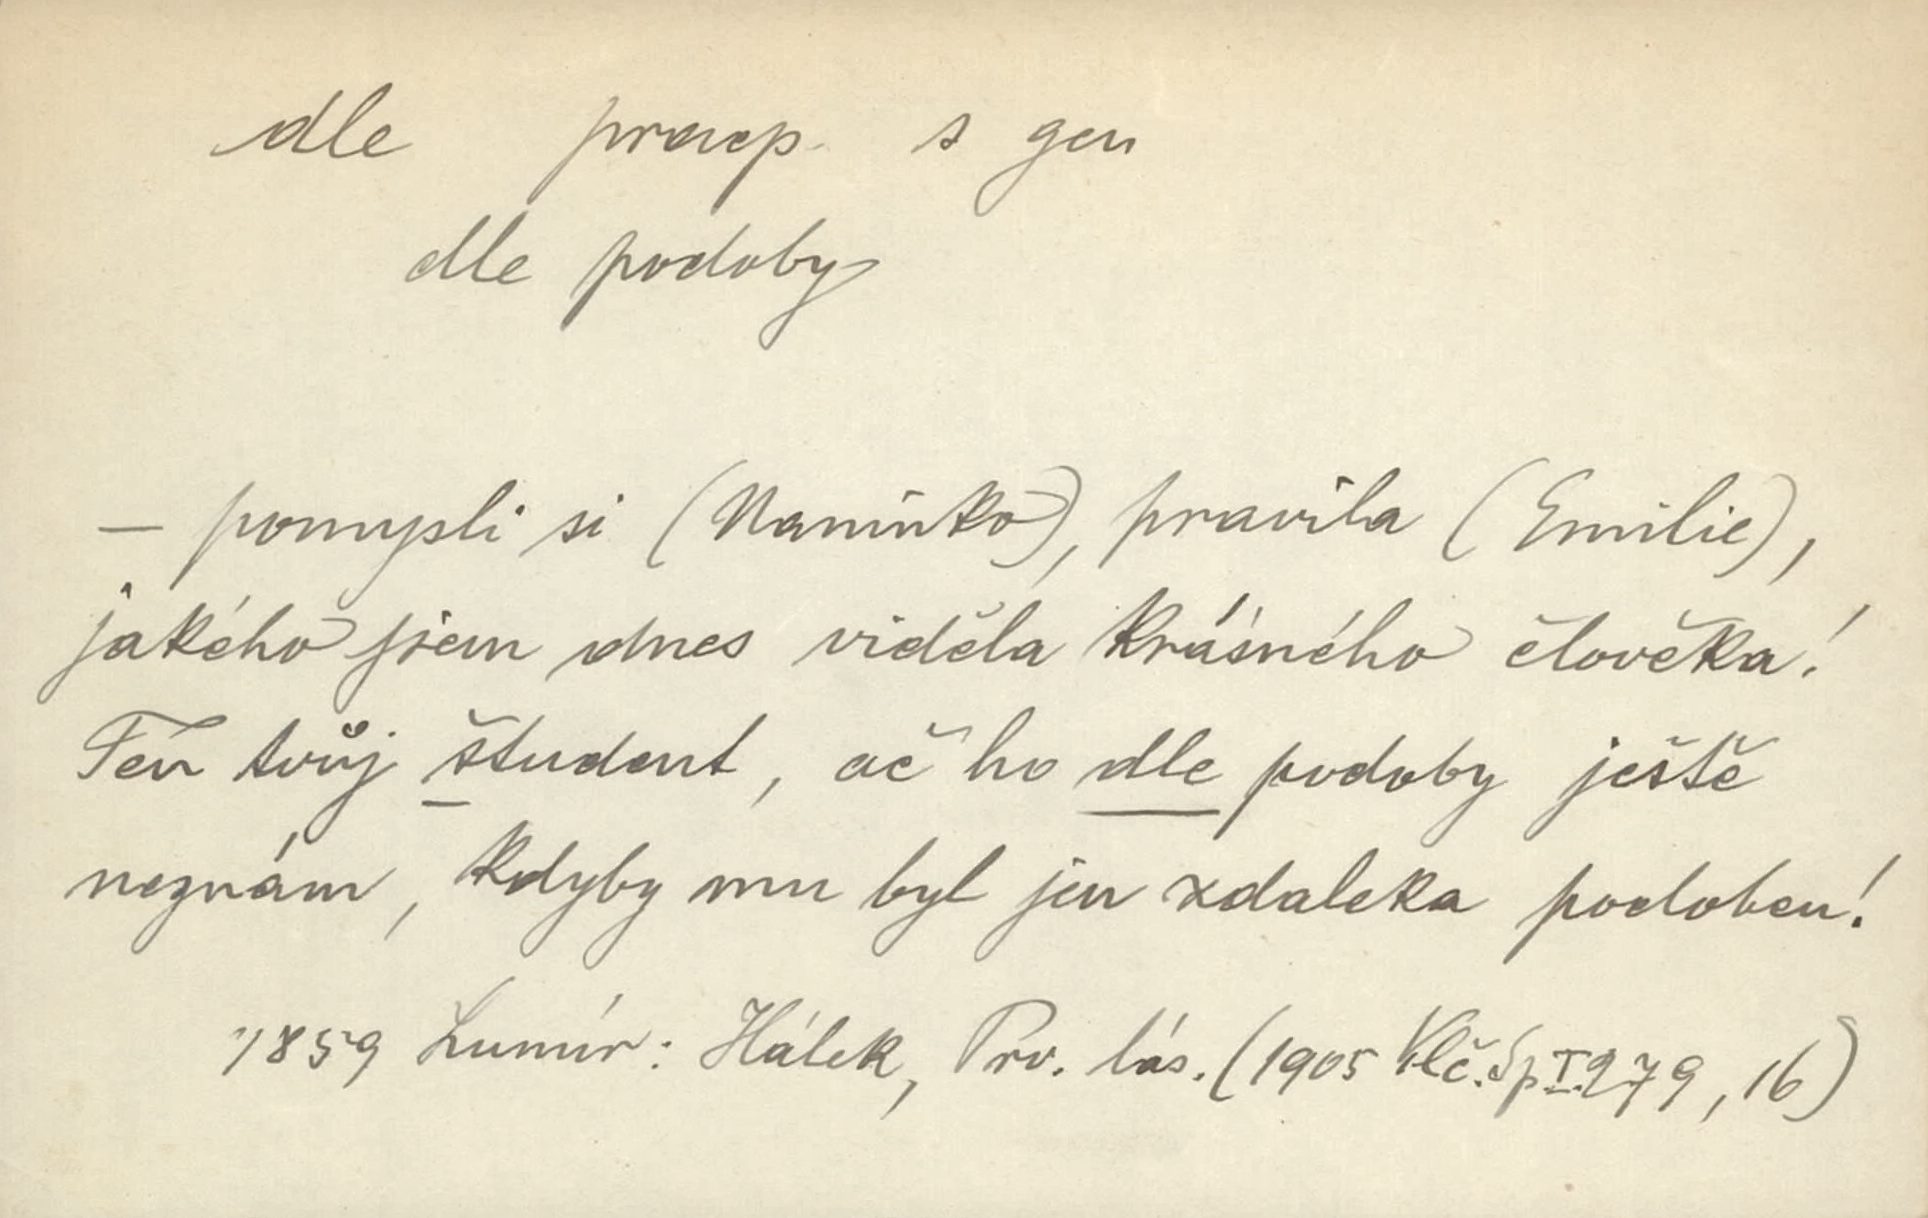 dle praep. s gen
dle podoby
— pomysli si (Naninko), pravila (Emilie),
jakého jsem dnes viděla krásného člověka!
Ten tvůj študent, ač ho dle podoby ještě
neznám, kdyby mu byl jen zdaleka podoben!
1859 Lumír: Hálek, Prv. lás. (1905 Vlč. Sp I. 279, 16)